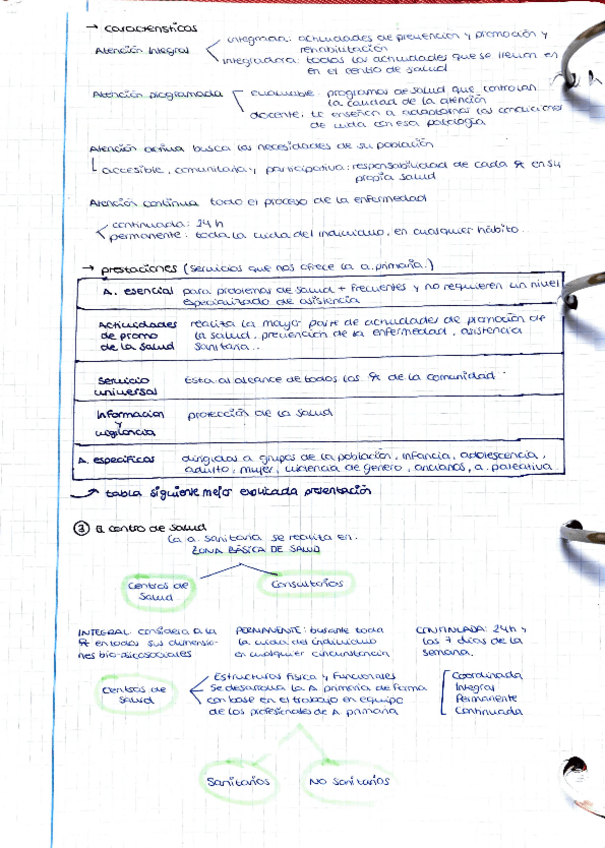 → Características
Atención Integral
integrada: actividades de prevención y promoción y
rehabilitación
integradora: todas las actividades que se llevan en
en el centro de salud
Atención programada
evaluable: programas de salud que controlan
la calidad de la atención
docente: te enseñan a adaptarnos las condiciones
de vida con esa patología
Atención activa busca las necesidades de su población
accesible, comunitaria y participativa: responsabilidad de cada px en su
propia salud
Atención continua todo el proceso de la enfermedad
continuada: 24h
permanente: toda la vida del individuo, en cualquier hábito.
→ prestaciones (servicios que nos ofrece la a. primaria.)
A. esencial para problemas de salud + frecuentes y no requieren un nivel
especializado de asistencia
Actividades
de promo
de la salud
realiza la mayor parte de actividades de promoción de
la salud, prevención de la enfermedad, asistencia
sanitaria..
Servicio
universal
Está al alcance de todos los px de la comunidad
Informacion
y
vigilancia
protección de la salud
A. específicas
dirigidas a grupos de la población, infancia, adolescencia,
adulto, mujer, violencia de género, ancianos, a. paleativa
tabla siguiente mejor explicada presentación
③ El centro de salud
La a. sanitaria se realiza en.
ZONA BÁSICA DE SALUD
Centros de
Salud
Consultorios
INTEGRAL: considera a la
px en todas sus dimensio-
nes bio-psicosociales
PERMANENTE: durante toda
la vida del individuo
en cualquier circunstancia
CONTINUADA: 24h y
los 7 días de la
semana.
Centros de
salud
Estructuras física y funcionales
Se desarrolla la A primaria de forma
con base en el trabajo en equipo
de los profesionales de A primaria
Coordinada
Integral
Permanente
Continuada
Sanitarios
No sanitarios